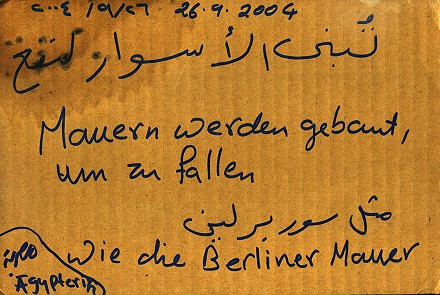 ٢٠٠٤ /٩/٢٦ 26.9.2004
تُبنى الأسوار لتقع
Mauern werden gebaut,
um zu fallen
مثل سور برلين
wie die Berliner Mauer
Ägypterin